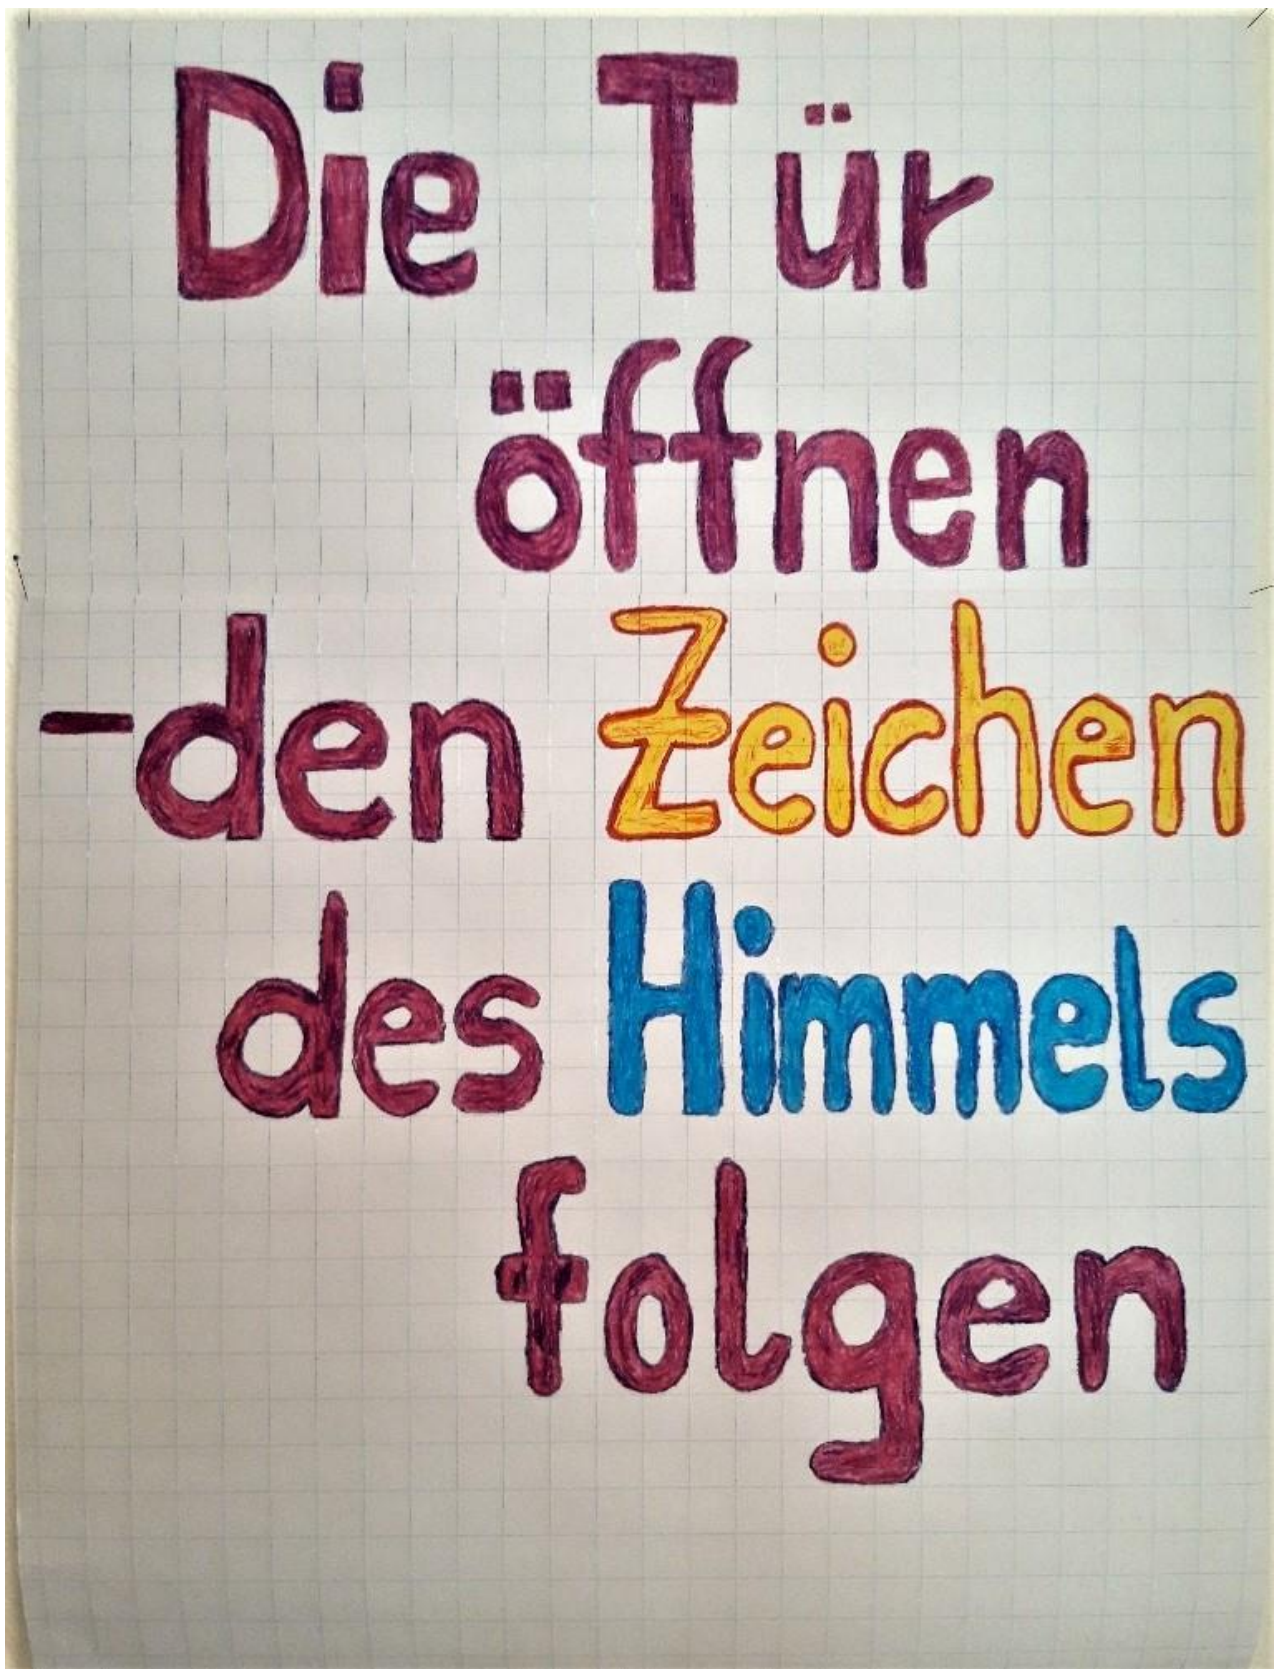 Die Tür
öffnen
-den Zeichen
des Himmels
folgen